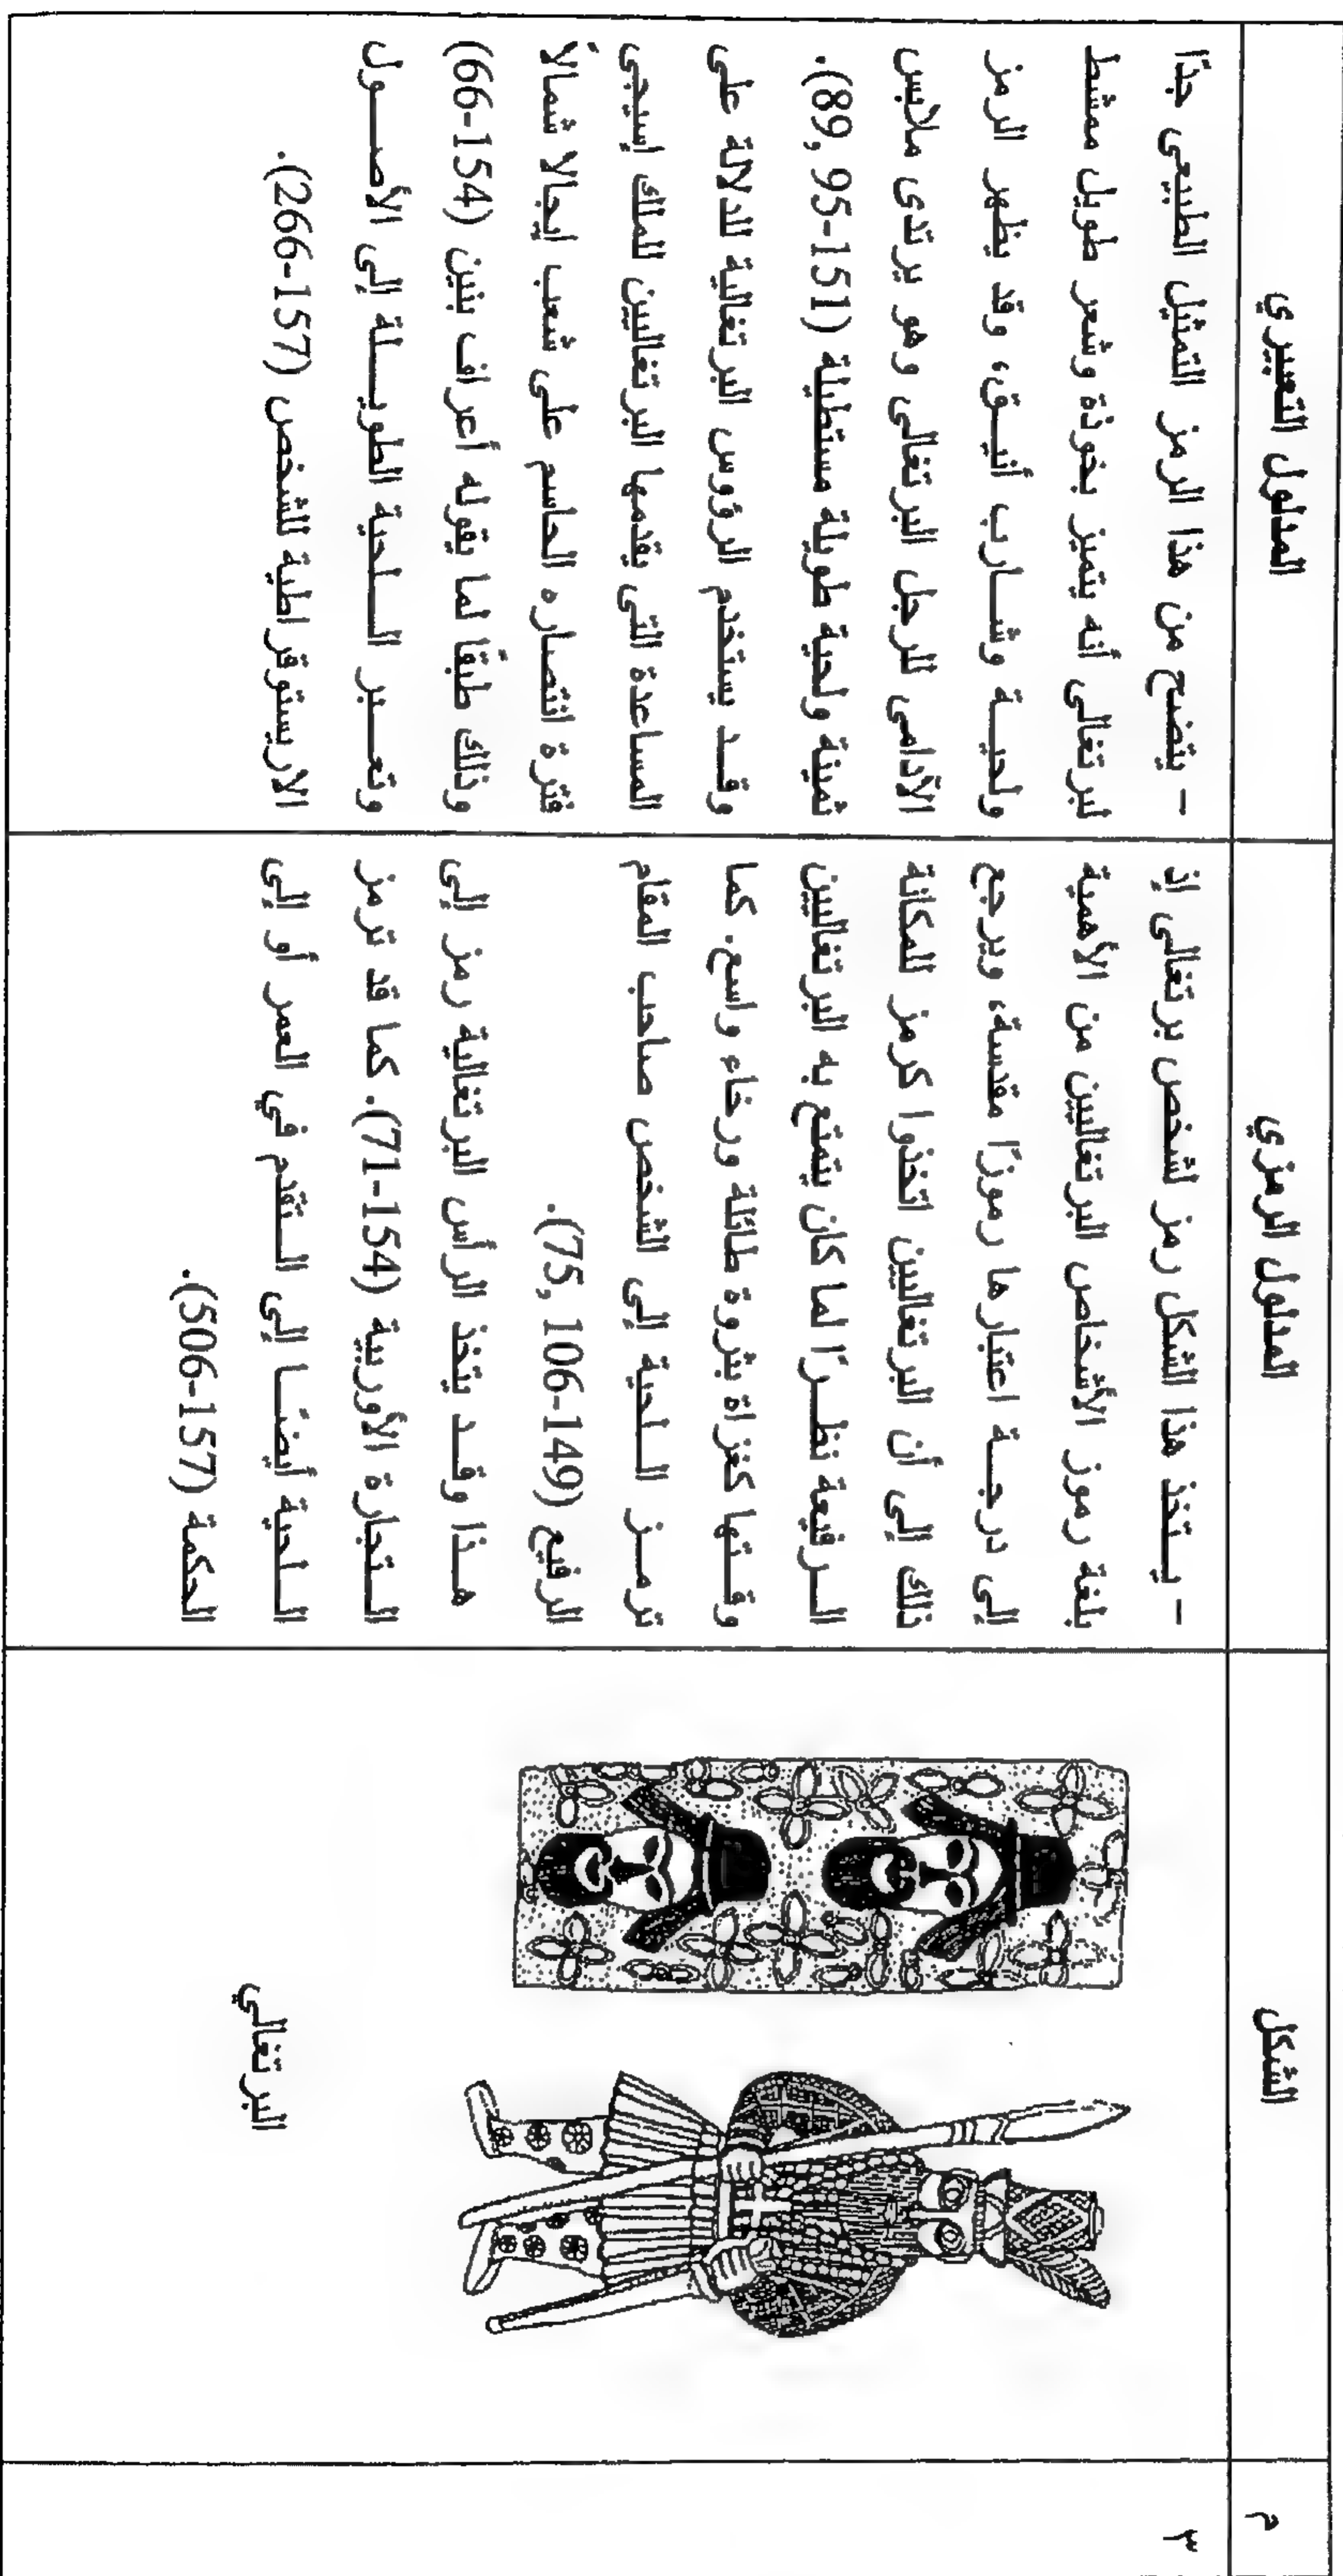 م
الشكل
المدلول الرمزي
المدلول التعبيري
٣
البرتغالي
- يـتخذ هذا الشكل رمز لشخص برتغالى إذ
بلغة رموز الأشخاص البرتغاليين من الأهمية
إلى درجـة اعتبارها رموزًا مقدسة، ويرجع
ذلك إلى أن البرتغاليين اتخذوا كرمز للمكانة
الـرفيعة نظـرًا لما كان يتمتع به البرتغاليين
وقـتها كغزاة بثروة طائلة ورخاء واسع. كما
ترمـز الـلحية إلى الشخص صاحب المقام
الرفيع (149-106 ,75).
هـذا وقـد يتخذ الرأس البرتغالية رمز إلى
الـتجارة الأوربية (154-71). كما قد ترمز
الـلحية أيضـا إلى الـتقدم في العمر أو إلى
الحكمة (157-506).
- يتضح من هذا الرمز التمثيل الطبيعى جدًا
لبرتغالى أنه يتميز بخوذة وشعر طويل ممشط
ولحيـة وشـارب أنيـق، وقد يظهر الرمز
الآدامى للرجل البرتغالى وهو يرتدى ملابس
ثمينة ولحية طويلة مستطيلة (151-95 ,89).
وقـد يستخدم الرؤوس البرتغالية للدلالة على
المساعدة التى يقدمها البرتغاليين للملك إسيجى
فترة انتصاره الحاسم على شعب إيجالا شمالاً
وذلك طبقًا لما يقوله أعراف بنين (154-66)
وتعـبر الـلحية الطويـلة إلى الأصـول
الاريستوقراطية للشخص (157-266).